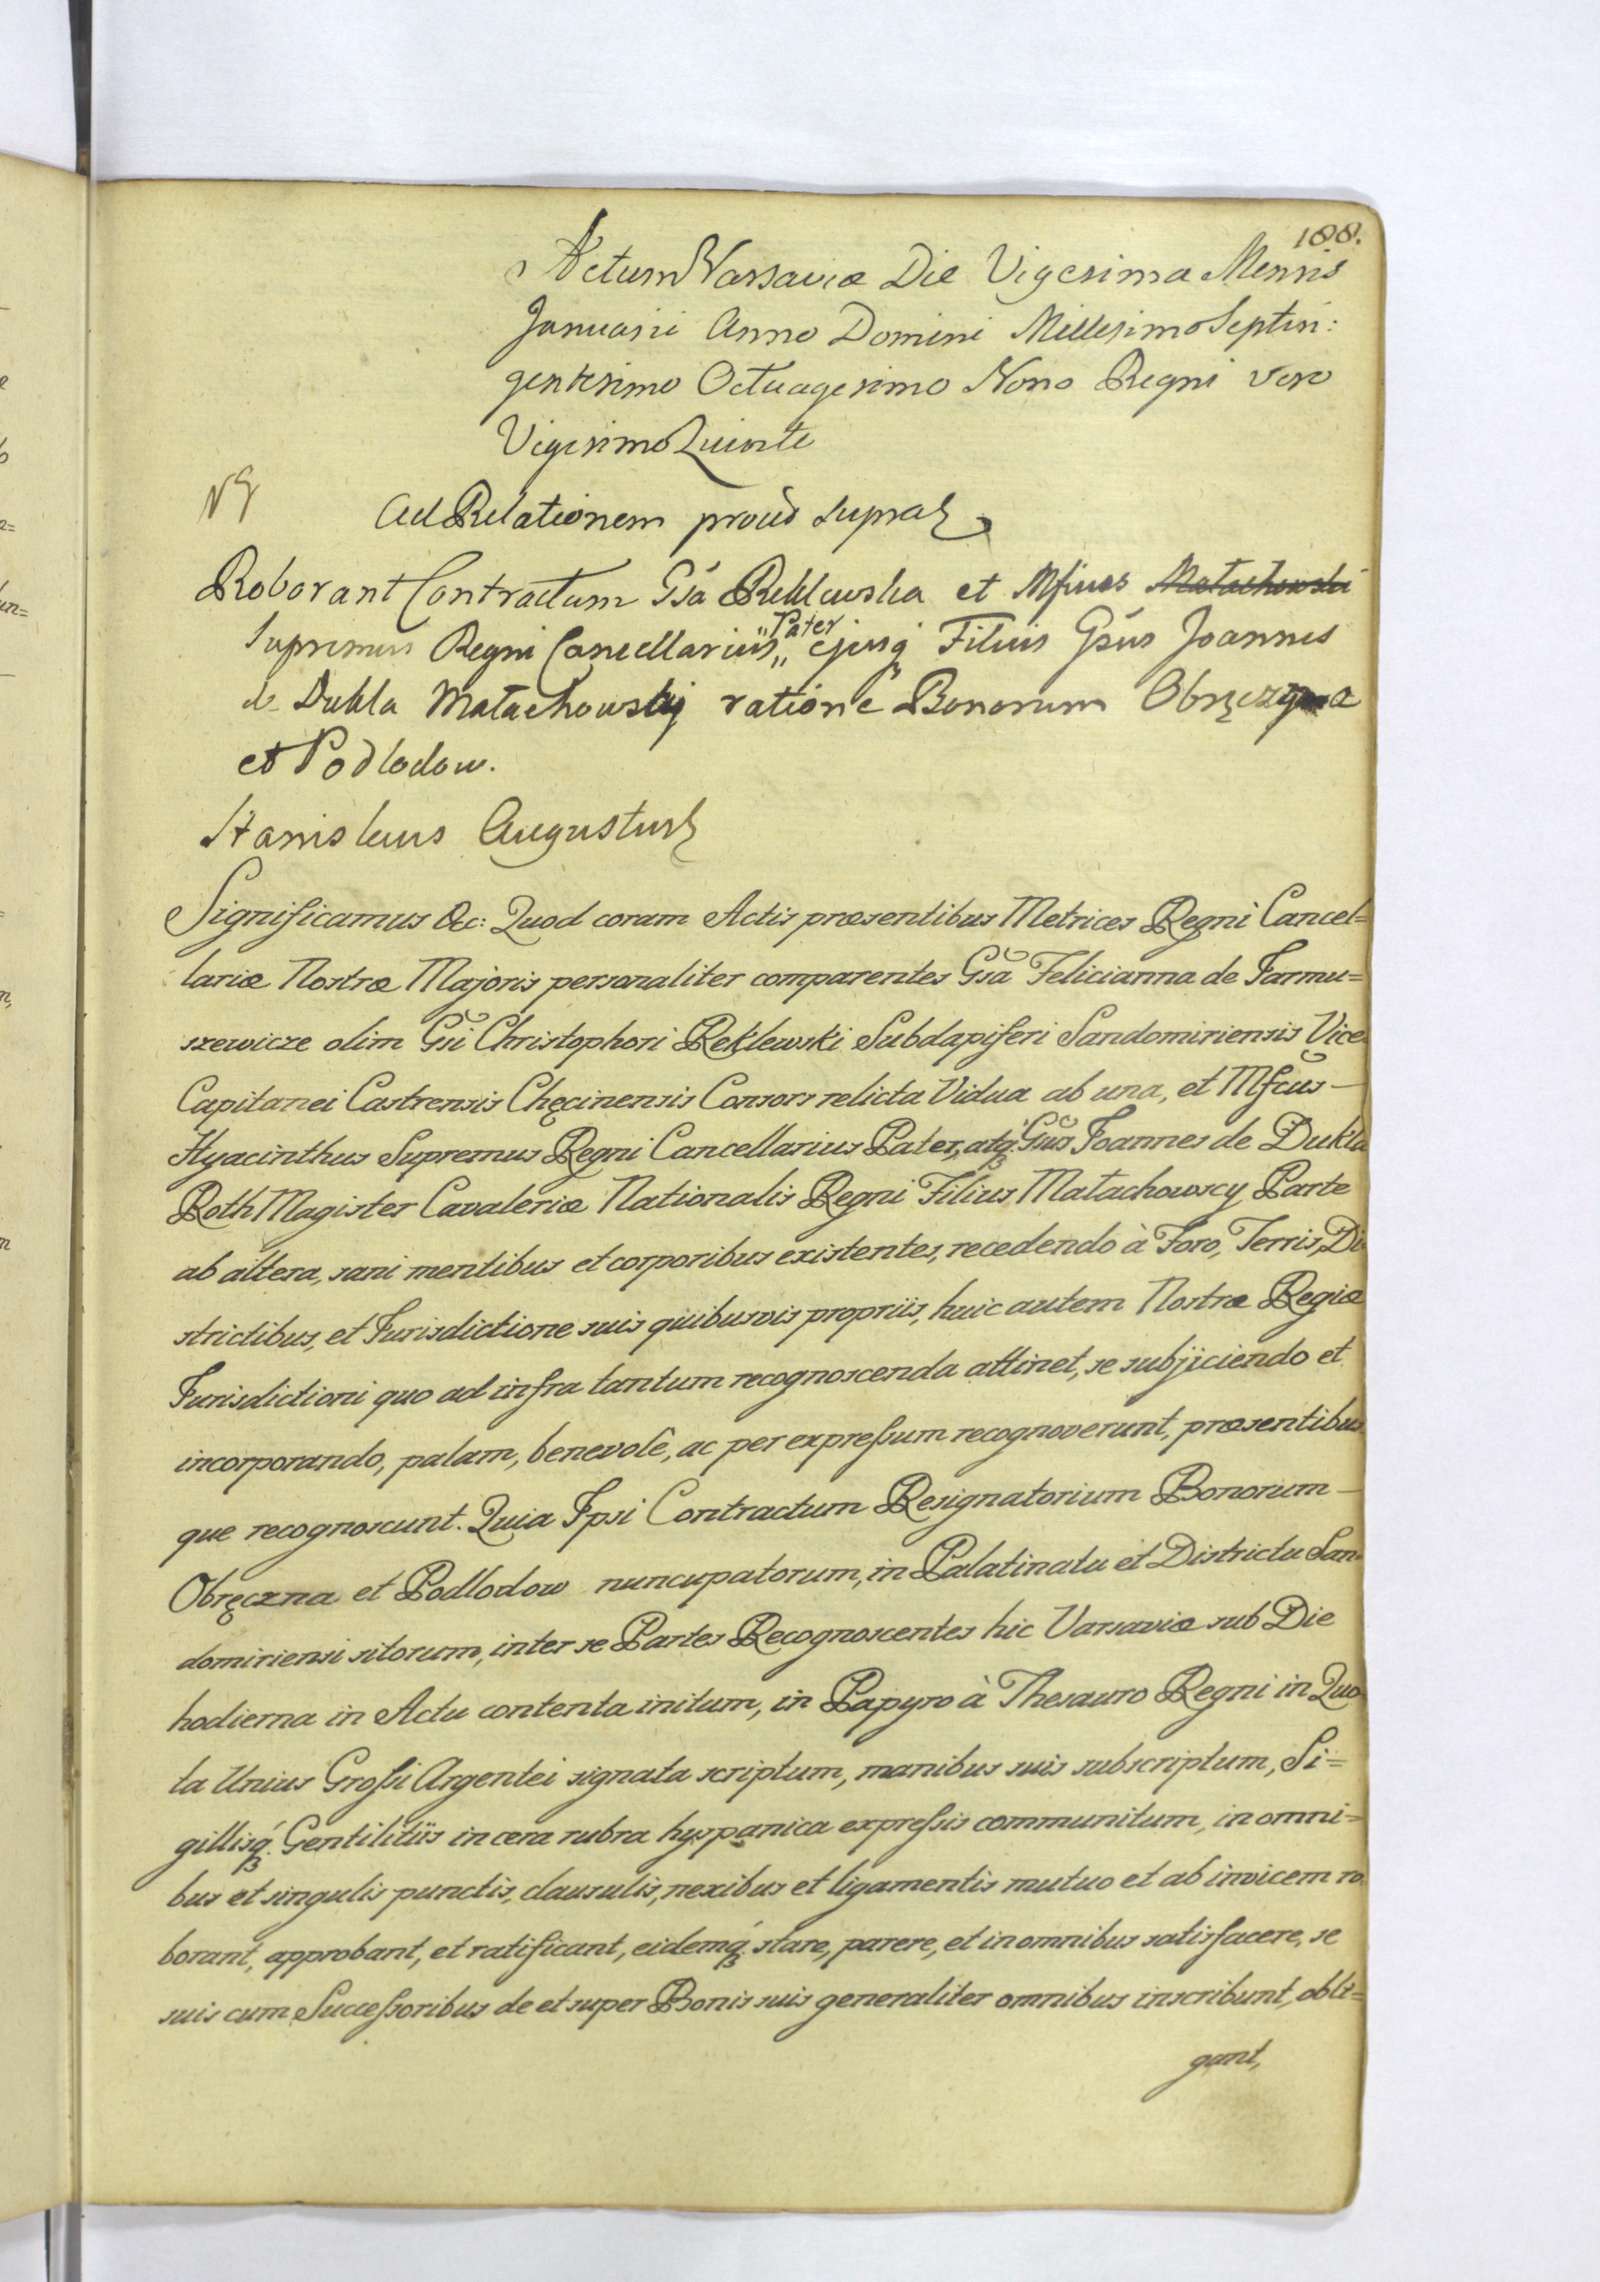 188.
Actum Varsaviæ Die Vigesima Mensis
Januarii Anno Domini Millesimo Septin:
gentesimo Octuagesimo Nono Regni vero
Vigesimo Quinto
Ad Relationem proút supra
Roborant Contractum Gsa Reklewska et Mfcus Małachowski
Supremus Regni Cancellarius „Pater„ ejusq Filius Gsus Joannes
de Dukla Małachowskÿ ratione Bonorum Obręczna
et Podlodow.
Stanislaus Augustus
Significamus &c: Quod coram Actis præsentibus Metrices Regni Cancel=
lariæ Nostræ Majoris personaliter comparentes Gsa Felicianna de Jarmu=
szewicze olim Gsi Christophori Reklewski Subdapiferi Sandomiriensis Vice
Capitanei Castrensis Chęcinensis Consors relicta Vidua ab una, et Mfcus —
Hyacinthus Supremus Regni Cancellarius Pater, atq. Gsus Joannes de Dukla
Roth Magister Cavaleriæ Nationalis Regni Filius Małachowscy Parte
ab altera, sani mentibus et corporibus existentes, recedendo à Foro, Terris, Di
strictibus, et Jurisdictione suis quibusvis propriis, huic autem Nostræ Regiæ
Jurisdictioni quo ad infra tantum recognoscenda attinet, se subjiciendo et
incorporando, palam, benevolê, ac per expreſsum recognoverunt, præsentibus
que recognoscunt. Quia Ipsi Contractum Resignatorium Bonorum —
Obręczna et Podlodow nuncupatorum, in Palatinatu et Districtu San=
domiriensi sitorum, inter se Partes Recognoscentes hic Varsaviæ sub Die
hodierna in Actu contenta initum, in Papyro à Thesauro Regni in Quo
ta Unius Groſsi Argentei signata scriptum, manibus suis subscriptum, Si=
gillisq́. Gentilitiis in cera rubra hyspanica expreſsis communitum, in omni=
bus et singulis punctis, clausulis, nexibus et ligamentis mutuo et ab invicem ro
borant, approbant, et ratificant, eidemq́. stare, parere, et in omnibus satisfacere, se
suis cum Succeſsoribus de et super Bonis suis generaliter omnibus inscribunt, obli=
gant,